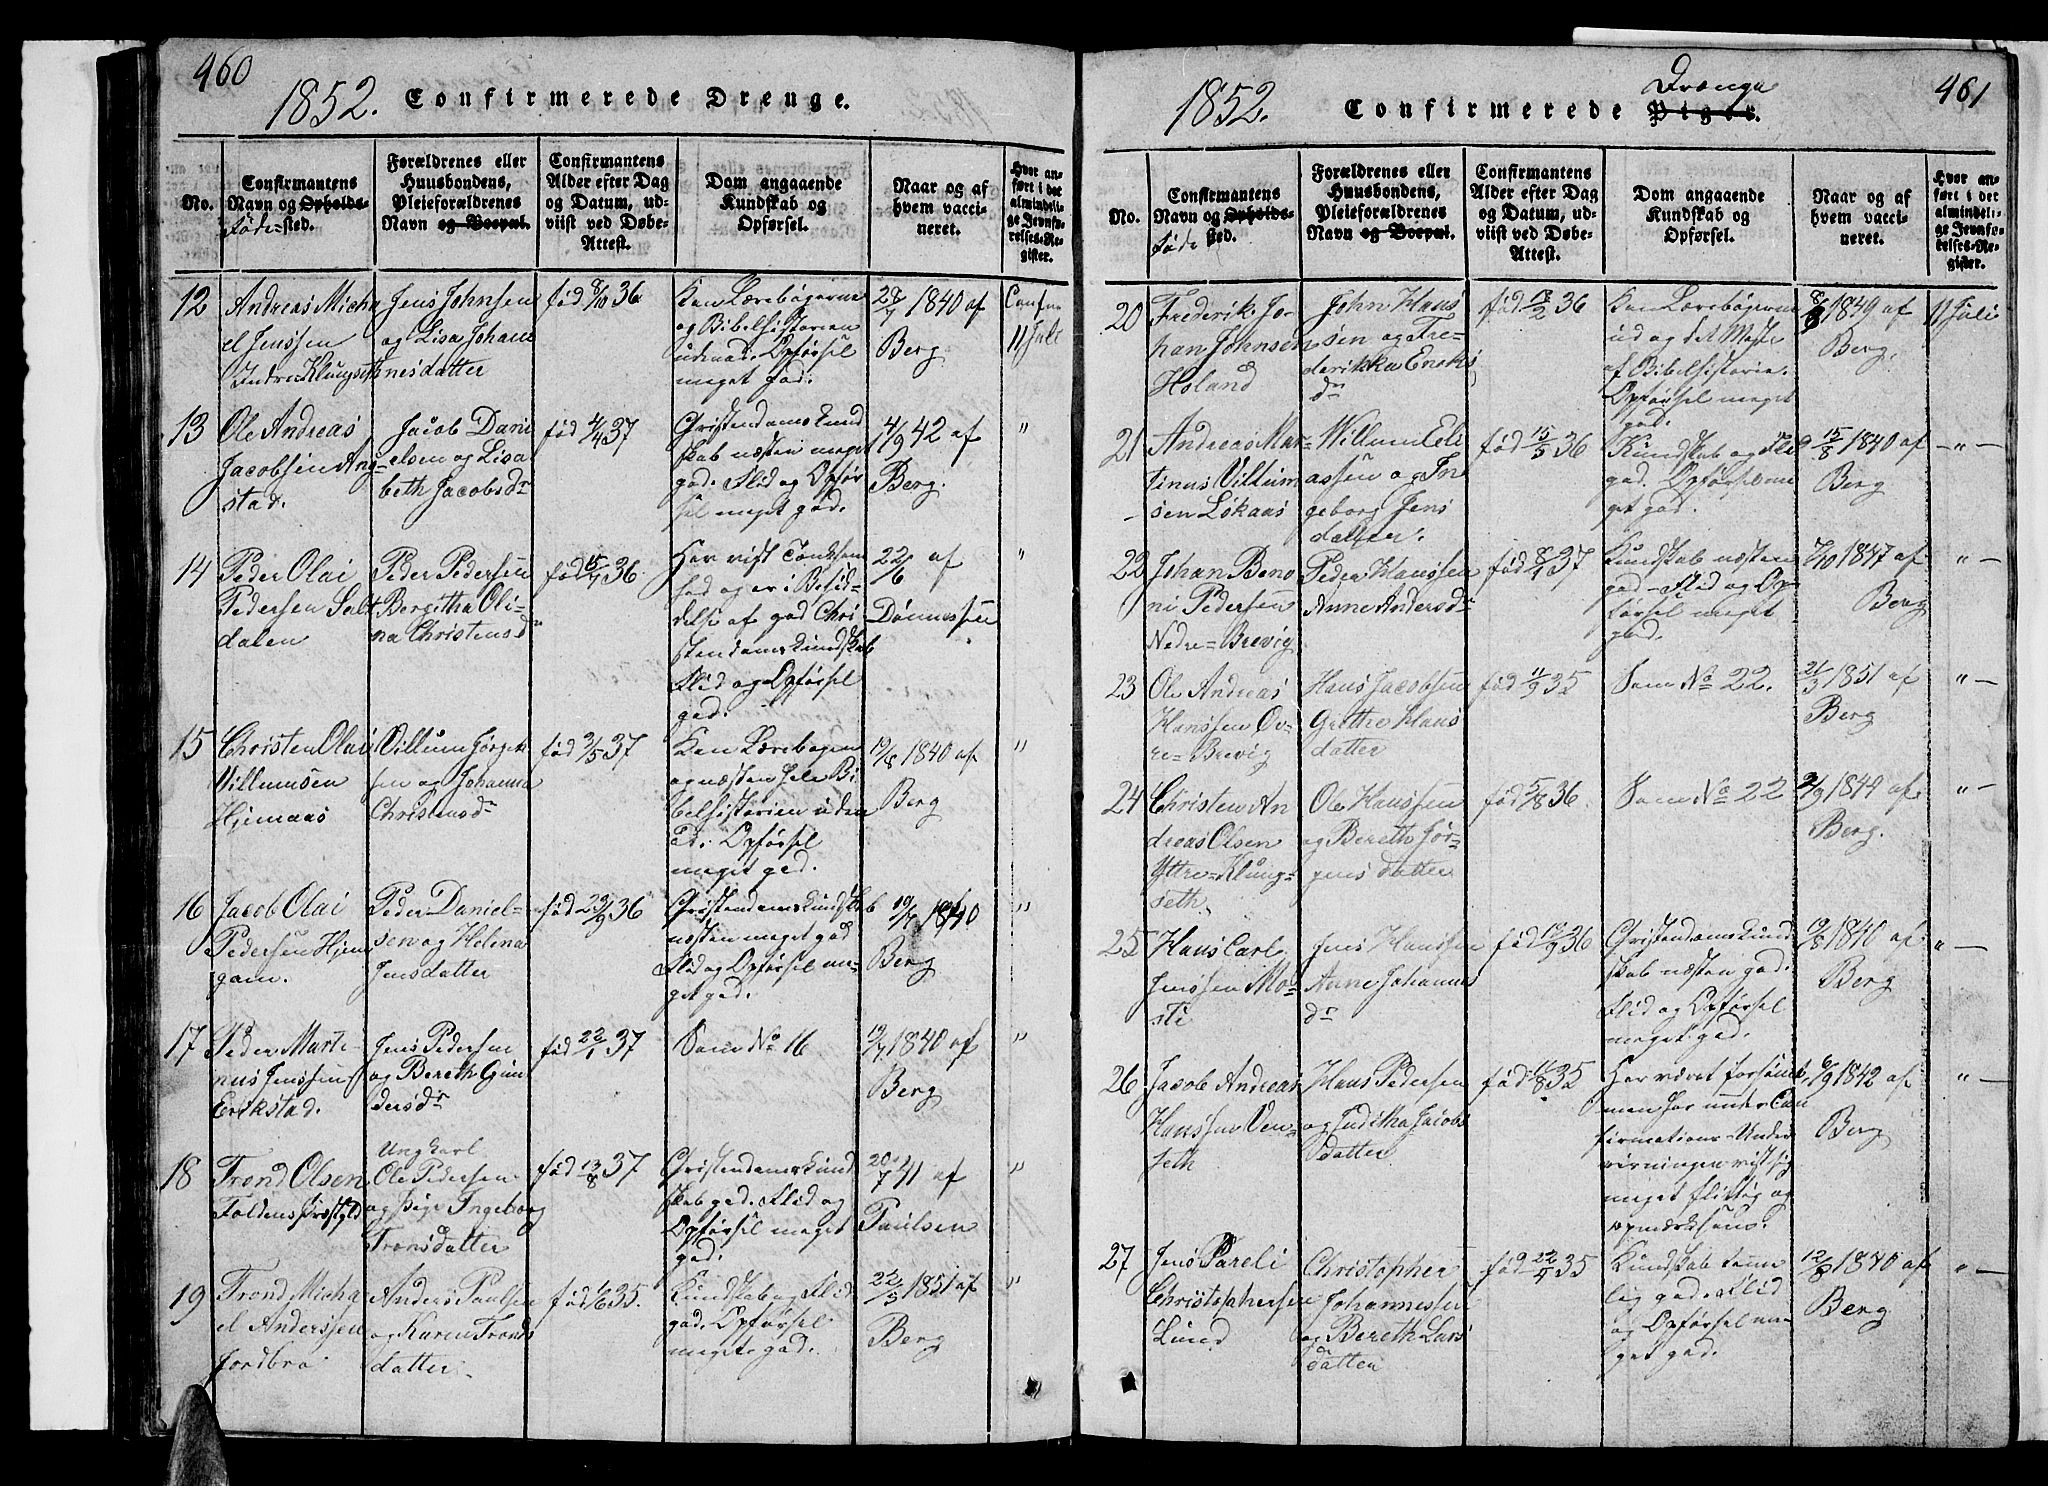 460
1852. Confirmerede Drenge.
No.
Confirmantens
Navn og Opholds-
Føde-sted.
Forældrenes eller
Huusbondens,
Pleieforældrenes
Navn og Boepæl.
Confirmantens
Alder efter Dag
og Datum, ud-
viist ved Døbe-
Attest.
Dom angaaende
Kundskab og
Opførsel.
Naar og af
hvem vacci-
neret.
Hvor an-
ført i det
almindeli-
ge Jevnfø-
relses-Re-
gister.
12
Andreas Micha
el Jenssen
Indre Klungset
Jens Johnsen
og Lisa Johan
nesdatter
fød 8/10 36
Kan Lærebøgerne
og Bibelhistorien
udenad. Opførsel
meget god.
1840 af
Berg
Confir
11 Juli
13
Ole Andreas
Jacobsen Ang-
stad.
Jacob Dani
elsen og Lisa
beth Jacobsdr
fød 4/4 37
Christendomskund
skab næsten meget
god. Flid og Opfør
sel meget god.
4/9 42 af
Berg.
"
14
Peder Olai
Pedersen Salt
dalen
Peder Pedersen
Bergitha Oli-
na Christensd
fød 15/7 36
Har vist Tænksom
hed og er i Besid-
delse af god Chri
stendomskundskab
Flid og Opførsel
god.
22/6 af
Dønnessen
"
15
Christen Olai
Villumsen
Hjemaas
Villum Jørgen
sen og Johanna
Christensdr
fød 3/5 37
Kan Lærebogen
og næsten hele Bi
belhistorien uden
ad. Opførsel
meget god.
19/8 1840 af
Berg
"
16
Jacob Olai
Pedersen Hjem
gam.
Peder Daniel-
sen og Helena
Jensdatter
fød 29/9 36
Christendomskundskab
næsten meget god
Flid og Opførsel me-
get god.
19/7 1840
Berg
"
17
Peder Marti
nus Jenssen
Erikstad.
Jens Pedersen
og Bereth Gun
dersdr
fød 22/1 37
Som No 16
19/7 1840 af
Berg
"
18
Trond Olsen
Foldens Præstgld
Ungkarl
Ole Pedersen
og Pige Ingeborg
Tronsdatter
fød 13/8 37
Christendomskund
skab god. Flid og
Opførsel meget
god.
20/7 41 af
Paulsen
"
19
Trond Micha
el Anderssen
Jordbro
Anders Paulsen
og Karen Tronds
datter
fød 1/6 35.
Kundskab og Flid
god. Opførsel
meget god.
22/5 1851 af
Berg
"
461
1852. Confirmerede Piger. Drenge
No.
Confirmantens
Navn og Opholds-
Føde sted.
Forældrenes eller
Huusbondens,
Pleieforældrenes
Navn og Boepæl.
Confirmantens
Alder efter Dag
og Datum, ud-
viist ved Døbe-
Attest.
Dom angaaende
Kundskab og
Opførsel.
Naar og af
hvem vacci-
neret.
Hvor an-
ført i det
almindeli-
ge Jevnfø-
relses-Re-
gister.
20
Frederik Jo-
han Johnsen
Holand
John Hans
sen og Fre-
derikka Eriks
dr
fød 18/2 36
Kan Lærebøgerne
ud og det Meste
af Bibelhistorien.
Opførsel meget
god.
1849 af
Berg.
11 Juli
21
Andreas Mar-
tinus Villum
sen Løkaas
Willum Eli
assen og In
geborg Jens
datter.
fød 15/5 36
Kundskab og Flid
god. Opførsel me
get god.
15/8 1840 af
Berg
"
22
Johan Beno
ni Pedersen
Nedre-Brevig
Peder Hanssen
Anne Andersdr
fød 8/1 37
Kundskab næsten
god - Flid og Op
førsel meget
god.
7/10 1847 af
Berg
"
23
Ole Andreas
Hanssen Øv-
re-Brevig
Hans Jacobsen
Grethe Hans
datter
fød 11/9 35
Som No 22.
21/3 1851 af
Berg
"
24
Christen An
dreas Olsen
Yttre-Klung-
seth.
Ole Hanssen
og Bereth Jør-
gensdatter
fød 5/8 36
Som No 22
1849 af
Berg.
"
25
Hans Carl
Jenssen Mo-
sti
Jens Hanssen
Anne Johannes
dr
fød 19/9 36
Christendomskund
skab næsten god.
Flid og Opførsel
meget god.
19/8 1840 af
Berg
"
26
Jacob Andreas
Hanssen Ven-
seth
Hans Pedersen
og Juditha Jacobs
datter
fød 11/8 35
Har været forsømt,
men har under Con
firmations-Under
visningen vist sig
meget flittig og
opmærksom.
6/9 1842 af
Berg
"
27
Jens Pareli
Christophersen
Lund
Christopher
Johannessen
og Bereth Lars
datter
fød 22/4 35
Kundskab temme
lig god. Flid
og Opførsel me-
get god.
12/8 1840 af
Berg
"